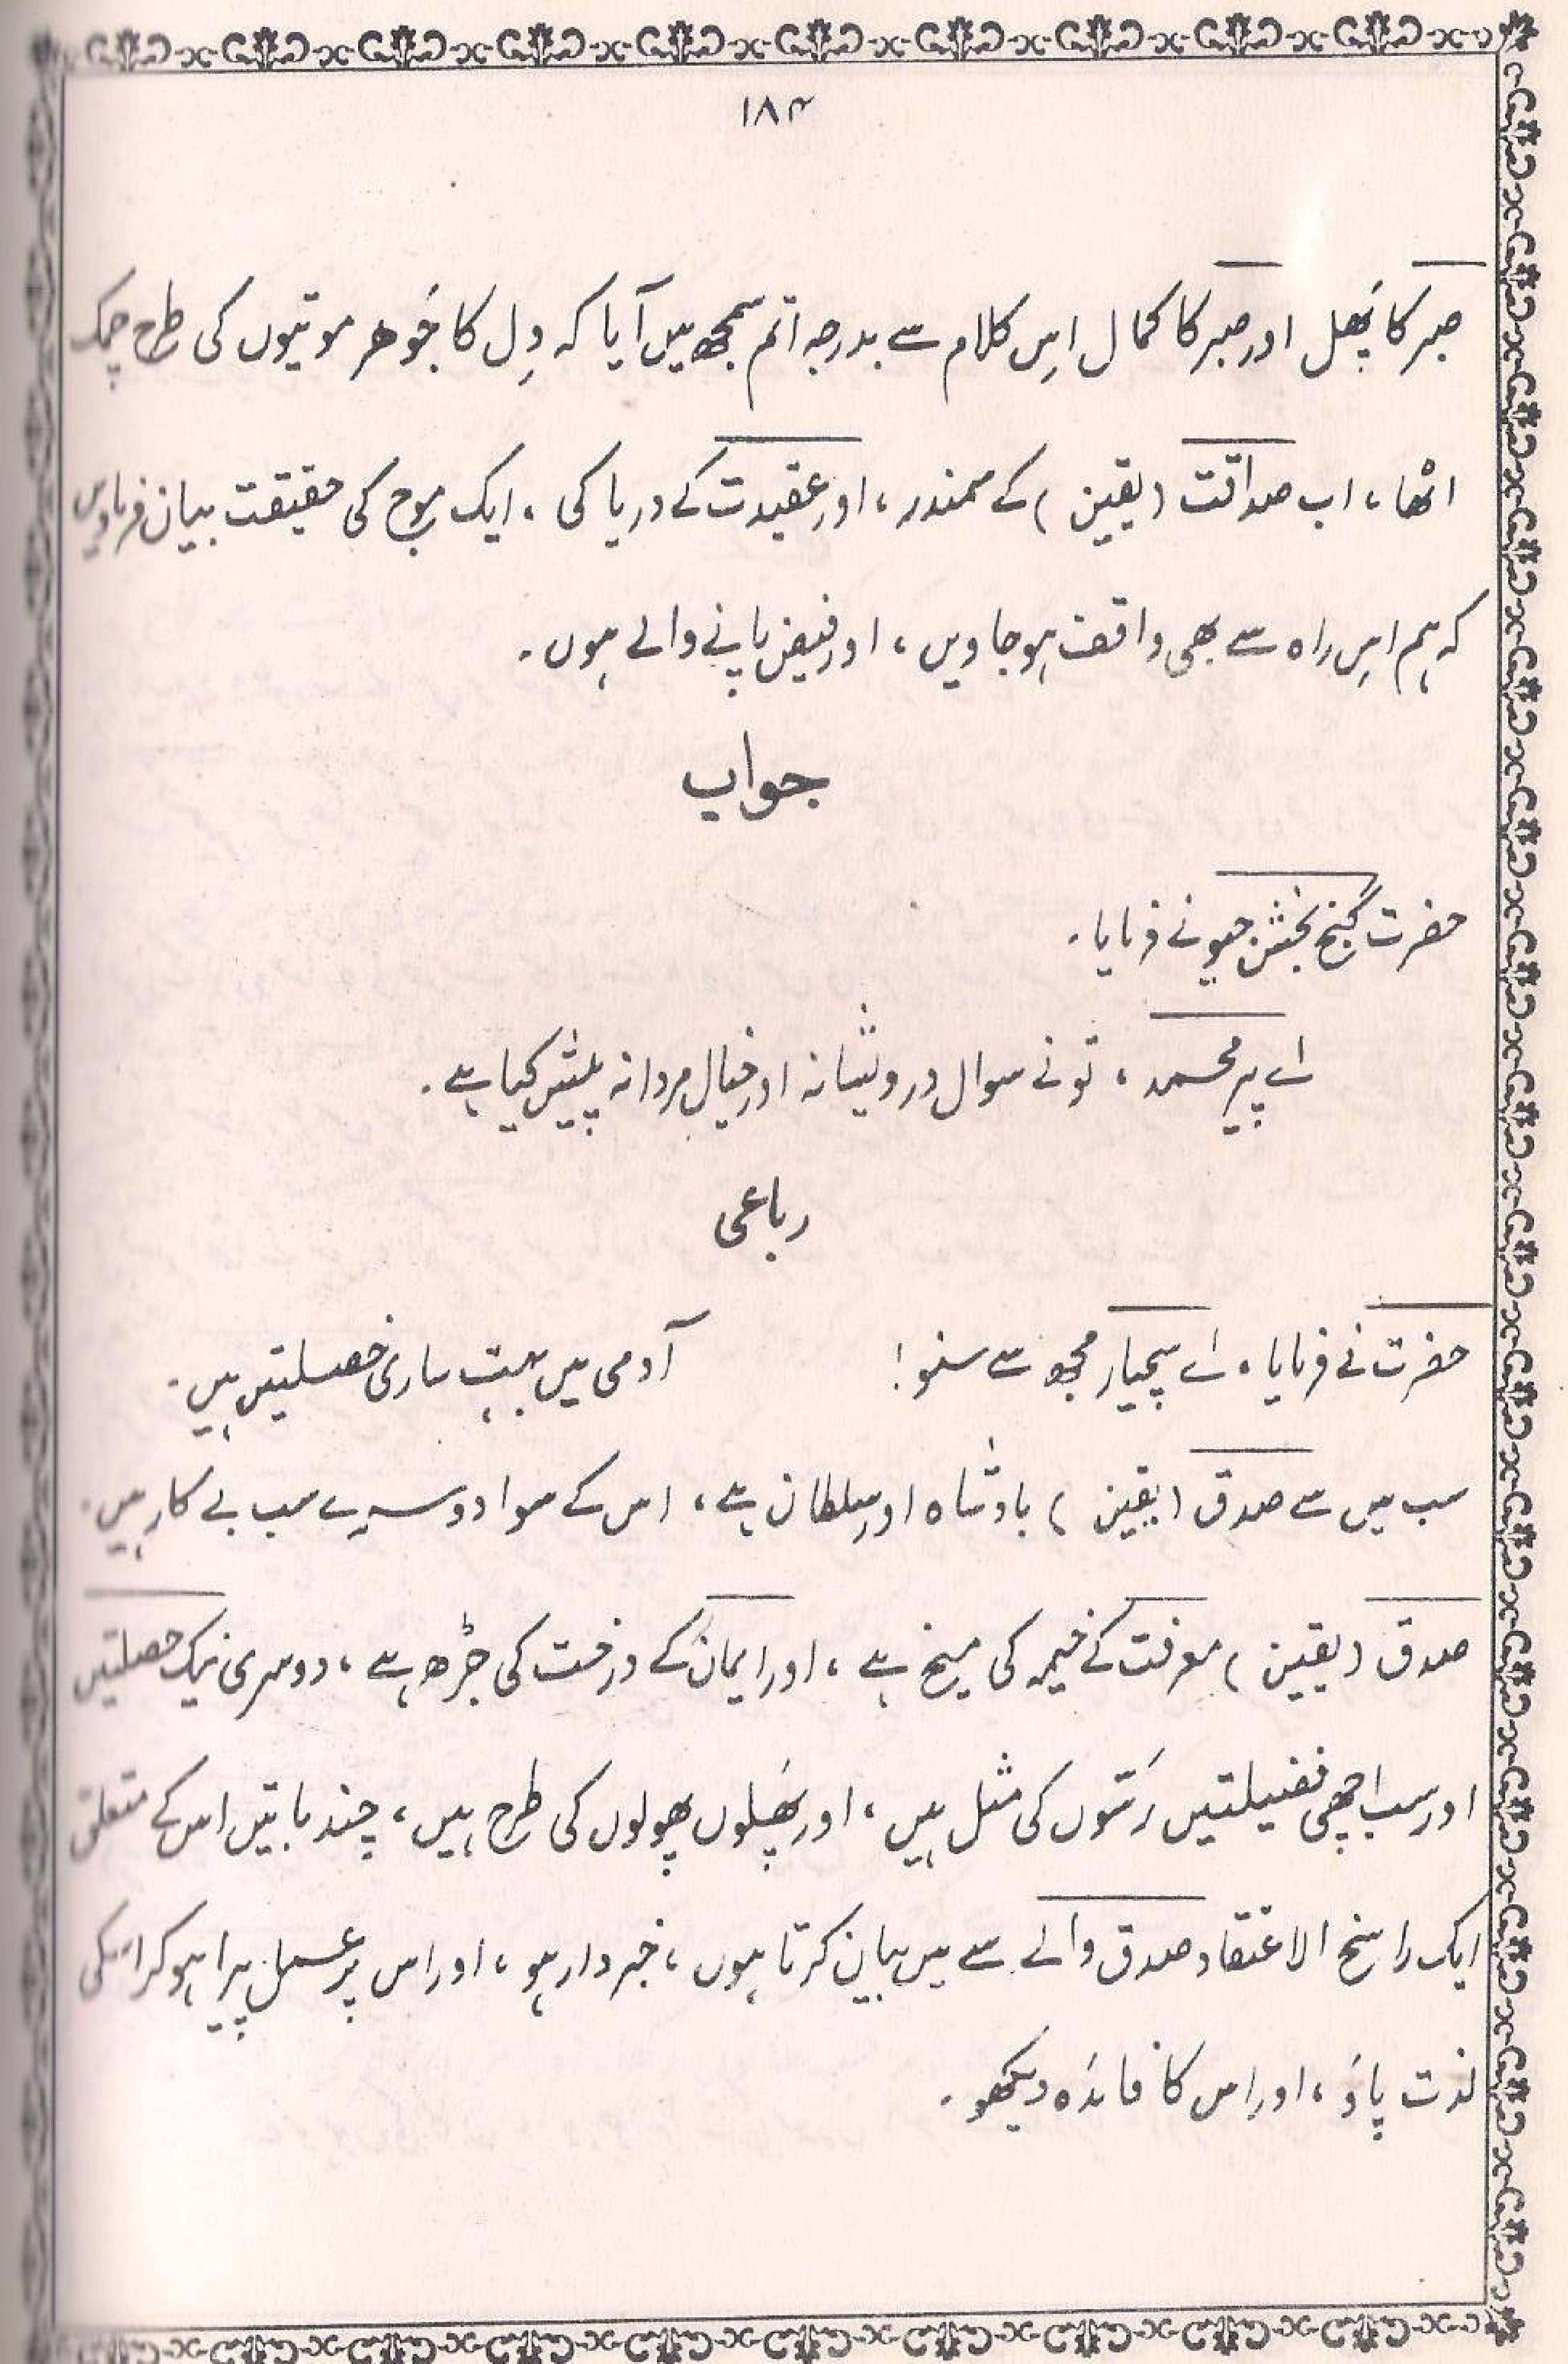 ۱۸۴
صبر کا پَھل اور صبر کا کمال اِس کلام سے بدرجہ اتم سمجھ میں آیا کہ دِل کا جَوھر موتیوں کی طرح چمک
اٹھا، اب صداقت (یقین) کے سمندر، اور عقیدت کے دریا کی، ایک موج کی حقیقت بیان فرماویں
کہ ہم اِس راہ سے بھی واقف ہو جاویں، اور فیض پانے والے ہوں۔
جواب
حضرت گنج بخش جیو نے فرمایا۔
اے پیر محمد، تو نے سوال درویشانہ اور خیال مردانہ پیش کیا ہے۔
رباعی
حضرت نے فرمایا، اے سچیار مجھ سے سنو! آدمی میں بہت ساری خصلتیں ہیں۔
سب میں سے صدق (یقین) بادشاہ اور سلطان ہے، اس کے سوا دوسرے سب بے کار ہیں۔
صدق (یقین) معرفت کے خیمہ کی میخ ہے، اور ایمان کے درخت کی جڑھ ہے، دوسری نیک خصلتیں
اور سب اچھی فضیلتیں رَسّوں کی مثل ہیں، اور پَھلوں پھولوں کی طرح ہیں، چند باتیں اس کے متعلق
ایک راسخ الاعتقاد صدق والے سے میں بیان کرتا ہوں، خبردار ہو، اور اس پر عمل پیرا ہو کر اسکی
لذت پاؤ، اور اس کا فائدہ دیکھو۔